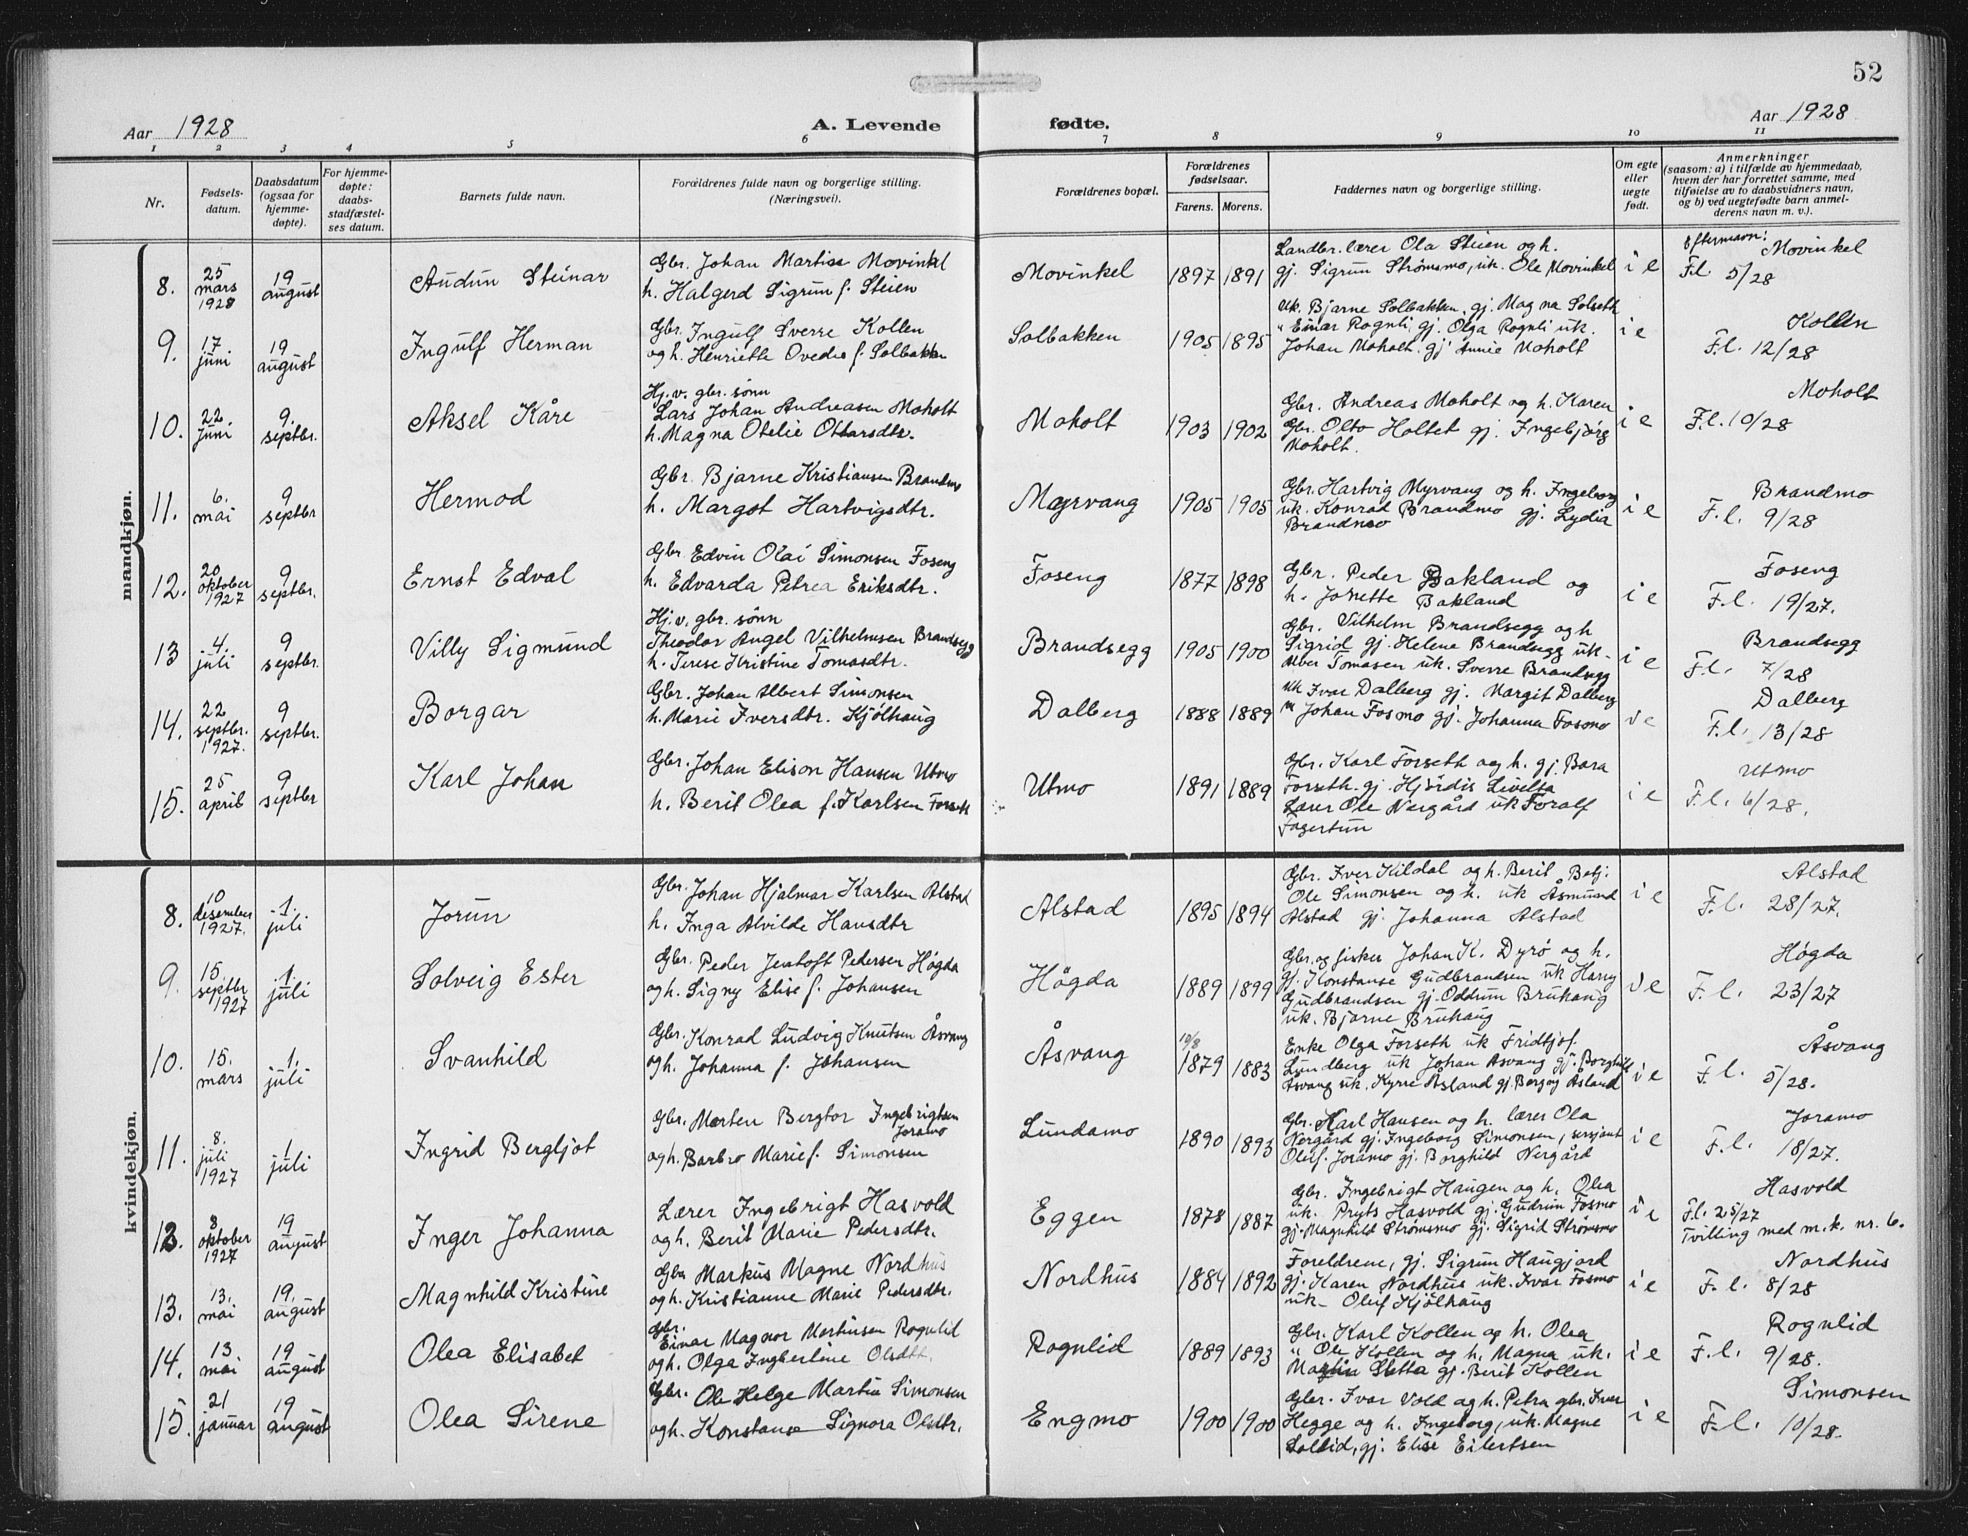 52
Aar 1928
A. Levende fødte.
Aar 1928
1 2 3 4 5 6 7 8 9 10 11
Nr.
Fødsels-
datum.
Daabsdatum
(ogsaa for
hjemme-
døpte).
For hjemme-
døpte:
daabs-
stadfæstel-
ses datum.
Barnets fulde navn.
Forældrenes fulde navn og borgerlige stilling.
(Næringsvei).
Forældrenes bopæl.
Forældrenes
fødselsaar.
Farens. Morens.
Faddernes navn og borgerlige stilling.
Om egte
eller
uegte
født.
Anmerkninger
(saasom: a) i tilfælde av hjemmedaab,
hvem der har forrettet samme, med
tilføielse av to daabsvidners navn,
og b) ved uegtefødte barn anmel-
derens navn m. v.).
mandkjøn.
8.
25
mars
1928
19
august
Audun Steinar
Gbr. Johan Martin Movinkel
h. Halgerd Sigrun f. Steien
Movinkel
1897 1891
Landbr. lærer Ola Steien og h.
gj. Sigrun Strømsmo, uk. Ole Movinkel
i e
Efternavn: Movinkel
F.l. 5/28
9.
17
juni
19
august
Ingulf Herman
Gbr. Ingulf Sverre Kollen
og h. Henriette Ovedie f. Solbakken
Solbakken
1905 1895
Uk. Bjarne Solbakken, gj. Magna Solseth
" Einar Rognli gj. Olga Rognli uk.
Johan Moholt. gj Annie Moholt
i e
Kollen
F.l. 12/28
10.
22
juni
9.
septbr.
Aksel Kåre
Hj. v. gbr. sønn
Lars Johan Andreasen Moholt
h. Magna Otelie Ottarsdtr.
Moholt
1903 1902
Gbr. Andreas Moholt og h. Karen
Gbr. Otto Holtet gj. Ingebjørg
Moholt.
i e
Moholt
F.l. 10/28
11.
6.
mai
9
septbr
Hermod
Gbr. Bjarne Kristiansen Brandmo
h. Margot Hartvigsdtr.
Myrvang
1905 1905
Gbr. Hartvig Myrvang og h. Ingeborg
uk. Konrad Brandmo gj. Lydia
Brandmo
i e
Brandmo
F.l. 9/28
12.
20
oktober
1927
9
septbr.
Ernst Edval
Gbr. Edvin Olai Simonsen Foseng
h. Edvarda Petrea Eriksdtr.
Foseng
1877 1898
Gbr. Peder Bakland og
h. Jonette Bakland
i e
Foseng
F.l. 19/27.
13
4
juli
9
septbr.
Villy Sigmund
Hj. v. gbr. sønn
Theodor Angel Vilhelmsen Brandsegg
h. Terese Kristine Tomasdtr.
Brandsegg
1905 1900
Gbr. Vilhelm Brandsegg og h
Sigrid gj. Helene Brandsegg uk.
Tomasen uk. Sverre Brandsegg
i e
Brandsegg
F.l. 7/28
14.
22
septbr.
1927.
9
septbr.
Borgar
Gbr. Johan Albert Simonsen
h. Marie Iversdtr. Kjølhaug
Dalberg
1888 1889
Uk Ivar Dalberg gj. Margit Dalberg
" Johan Fosmo gj. Johanna Fosmo
i e
Dalberg
F.l. 13/28
15.
25
april
9
septbr
Karl Johan
Gbr. Johan Elison Hansen Utmo
h. Berit Olea f. Karlsen Forseth
Utmo
1891 1889
Gbr. Karl Forseth og h. gj. Bara
Forseth. gj. Hjørdis
Lærer Ole Nergård uk Toralf
Fagertun
i e
Utmo
F.l. 6/28.
kvindekjøn.
8.
10
desember
1927.
1.
juli
Jorun
Gbr. Johan Hjalmar Karlsen Alstad
h. Inga Alvilde Hansdtr
Alstad
1895 1894
Gbr. Iver Kildal og h. Berit Betj.
Ole Simonsen og h. uk Åsmund
Alstad gj. Johanna Alstad
i e
Alstad
F.l. 28/27.
9.
15.
septbr
1927
1.
juli
Solveig Ester
Gbr. Peder Jentoft Pedersen Høgda
og h. Signy Elise f. Johansen
Høgda
1889 1899
Gbr. og fisker Johan K. Dyrø og h.
gj. Konstanse Gudbrandsen uk Harry
Gudbrandsen gj. Oddrun Bruhaug
uk. Bjarne Bruhaug
i e
Høgda
F.l. 23/27
10.
15.
mars
1.
juli
Svanhild
Gbr. Konrad Ludvig Knutsen Åsvang
og h. Johanna f. Johansen
Åsvang
10/8
1879 1883
Enke Olga Forseth uk Fridtjof
Lundberg uk Johan Åsvang gj. Borghild
Åsvang uk. Kyrre Åsland gj. Bergoy Åsland
i e
Åsvang
F.l. 5/28.
11.
8.
juli
1927
1.
juli
Ingrid Bergljot
Gbr. Morten Bergtor Ingebrigtsen
Joramo
og h. Barbro Marie f. Simonsen
Lundamo
1890 1893
Gbr. Karl Hansen og h. lærer Ola
Nergård gj. Ingeborg Simonsen, sersjant
Oluf. Joramo gj. Borghild Nergård
i e
Joramo
F.l. 18/27.
12.
8.
oktober
1927
19
august
Inger Johanna
Lærer Ingebrigt Hasvold
og h. Berit Marie Pedersdtr.
Eggen
1878 1887
Gbr. Ingebrigt Haugen og h. Olea
uk. Pryts Hasvold gj. Gudrun Fosmo
gj. Magnhild Strømsmo gj. Sigrid Strømsmo
i e
Hasvold
F.l. 25/27
Tvilling med m.k. nr. 6.
13.
13.
mai
19.
august
Magnhild Kristine
Gbr Markus Magne Nordhus
og h. Kristianne Marie Pedersdtr.
Nordhus
1884 1892
Foreldrene, gj. Sigrun Haugjord
gj. Karen Nordhus uk. Ivar Fosmo
uk. Oluf Kjølhaug
i e
Nordhus
F.l. 8/28
14.
13
mai
19
august
Olea Elisabet
Gbr.
Einar Magnor Martinsen Rognlid
og h. Olga Ingberline Olsdtt.
Rognlid
1889 1893
Gbr. Karl Kollen og h. Olea
" Ole Kollen og h. Magna uk.
Martin Sletta gj. Berit Kollen
i e
Rognlid
F.l. 9/28.
15.
21
januar
19
august
Olea Sirene
Gbr. Ole Helge Martin Simonsen
og h. Konstanse Signora Olsdtr.
Engmo
1900 1900
Gbr. Ivar Vold og h. Petra gbr. Iver
Hegge og h. Ingeborg, uk. Magne
Sollid, gj. Elise Eilertsen
i e
Simonsen
F.l. 10/28.